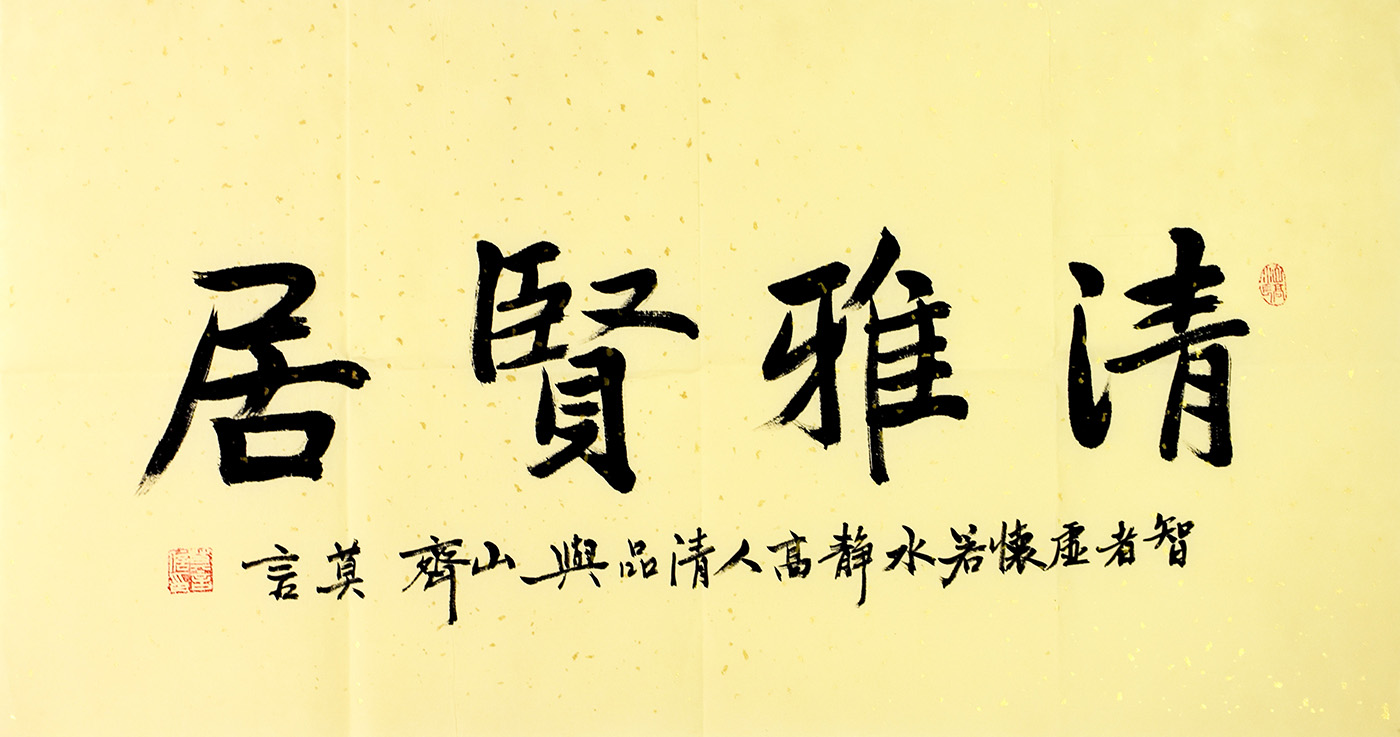 清雅賢居
智者虛懷若水靜高人清品與山齊 莫言